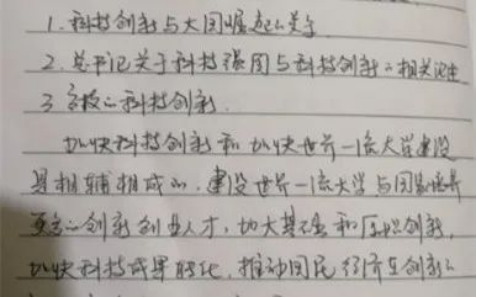 1. 科技创新与大国崛起的关系
2. 总书记关于科技强国与科技创新的相关论述
3 高校的科技创新.
加快科技创新和加快世界一流大学建设
是相辅相成的,建设世界一流大学与国家培养
更多的创新创业人才,加大基础和原始创新,
加快科技成果转化,推动国民经济在创新的